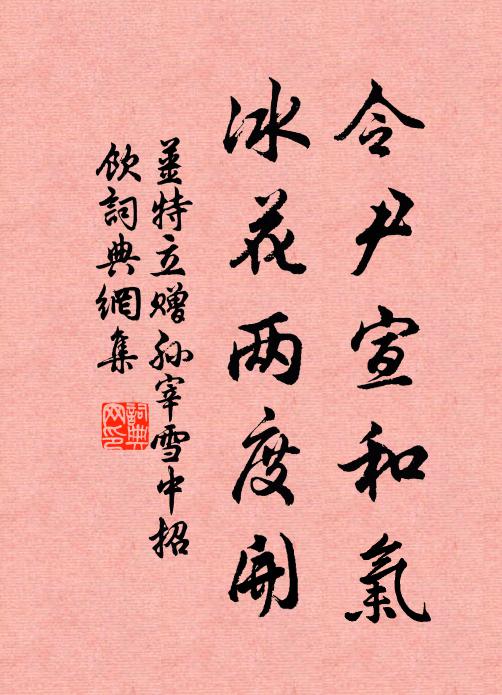 令尹宣和氣
冰花两度開
姜特立赠孙宰雪中招
飲詞典網集
詞典网印